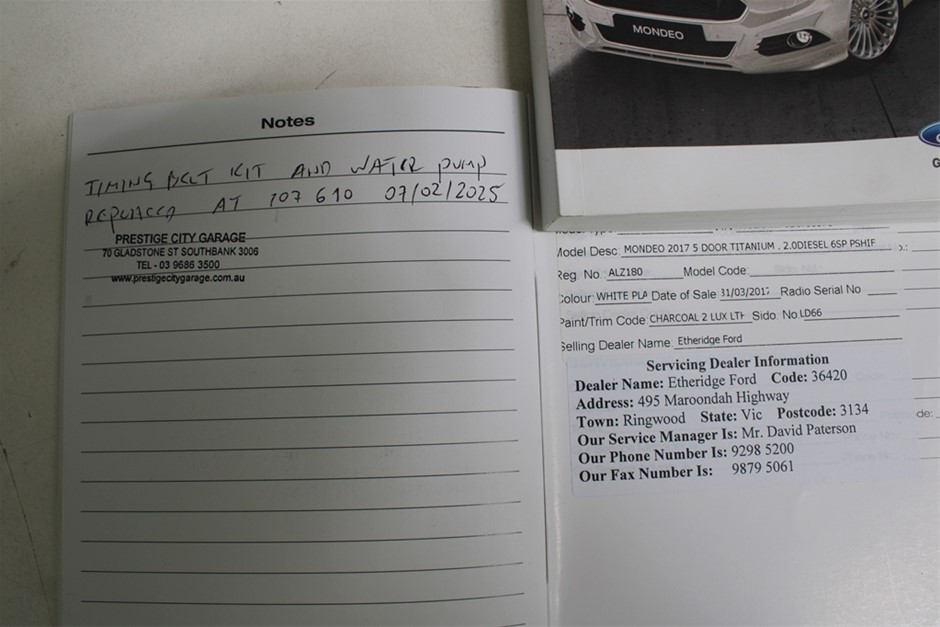 MONDEO
Notes
TIMING BELT KIT AND WATER PUMP
REPLACED AT 107 610 07/02/2025
PRESTIGE CITY GARAGE
70 GLADSTONE ST SOUTHBANK 3006
TEL - 03 9686 3500
www.prestigecitygarage.com.au
Model Desc: MONDEO 2017 5 DOOR TITANIUM . 2.0DIESEL 6SP PSHIF
Reg. No: ALZ180 Model Code:
Colour: WHITE PLA Date of Sale 31/03/2017 Radio Serial No
Paint/Trim Code CHARCOAL 2 LUX LTH Sido. No LD66
Selling Dealer Name: Etheridge Ford
Servicing Dealer Information
Dealer Name: Etheridge Ford Code: 36420
Address: 495 Maroondah Highway
Town: Ringwood State: Vic Postcode: 3134
Our Service Manager Is: Mr. David Paterson
Our Phone Number Is: 9298 5200
Our Fax Number Is: 9879 5061